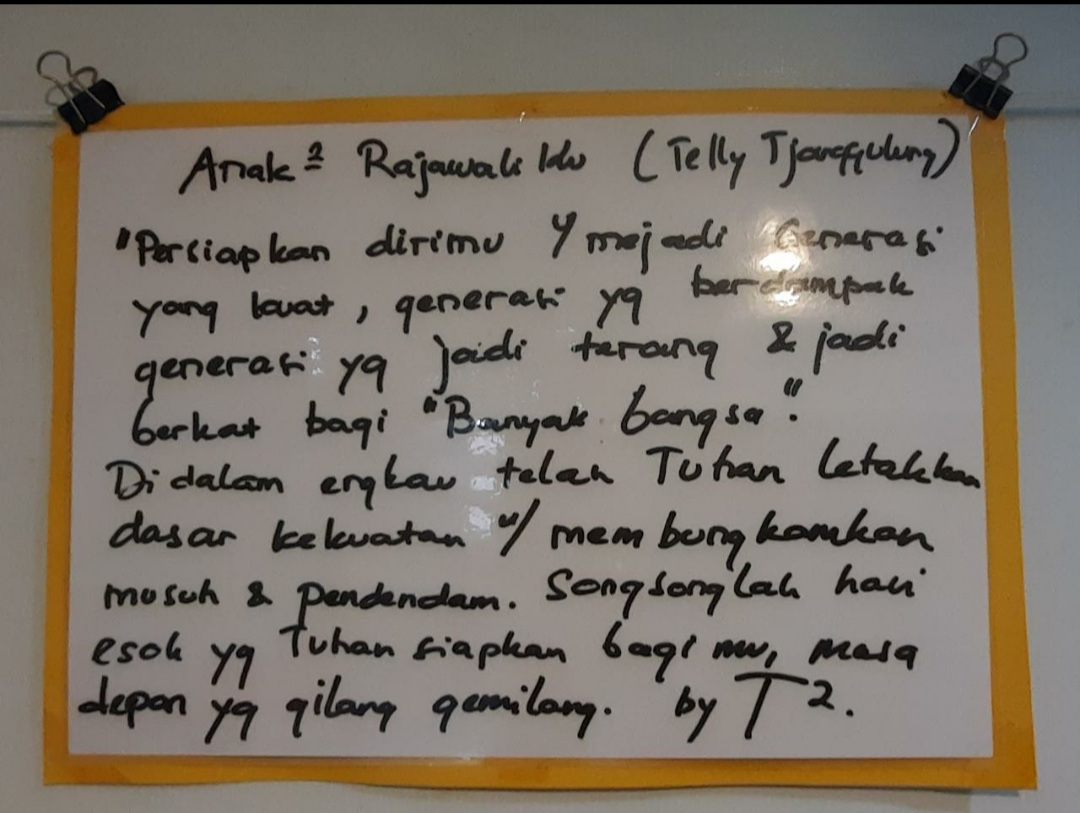 Anak² Rajawali Idu (Telly Tjanggulung)
"Persiapkan dirimu y mejadi Generasi
yang kuat, generasi yg berdampak
generasi yg jadi terang & jadi
berkat bagi "Banyak bangsa".
Didalam engkau telah Tuhan letakkan
dasar kekuatan u/ membungkamkan
musuh & pendendam. Songsonglah hari
esok yg Tuhan siapkan bagimu, masa
depan yg gilang gemilang. by T².